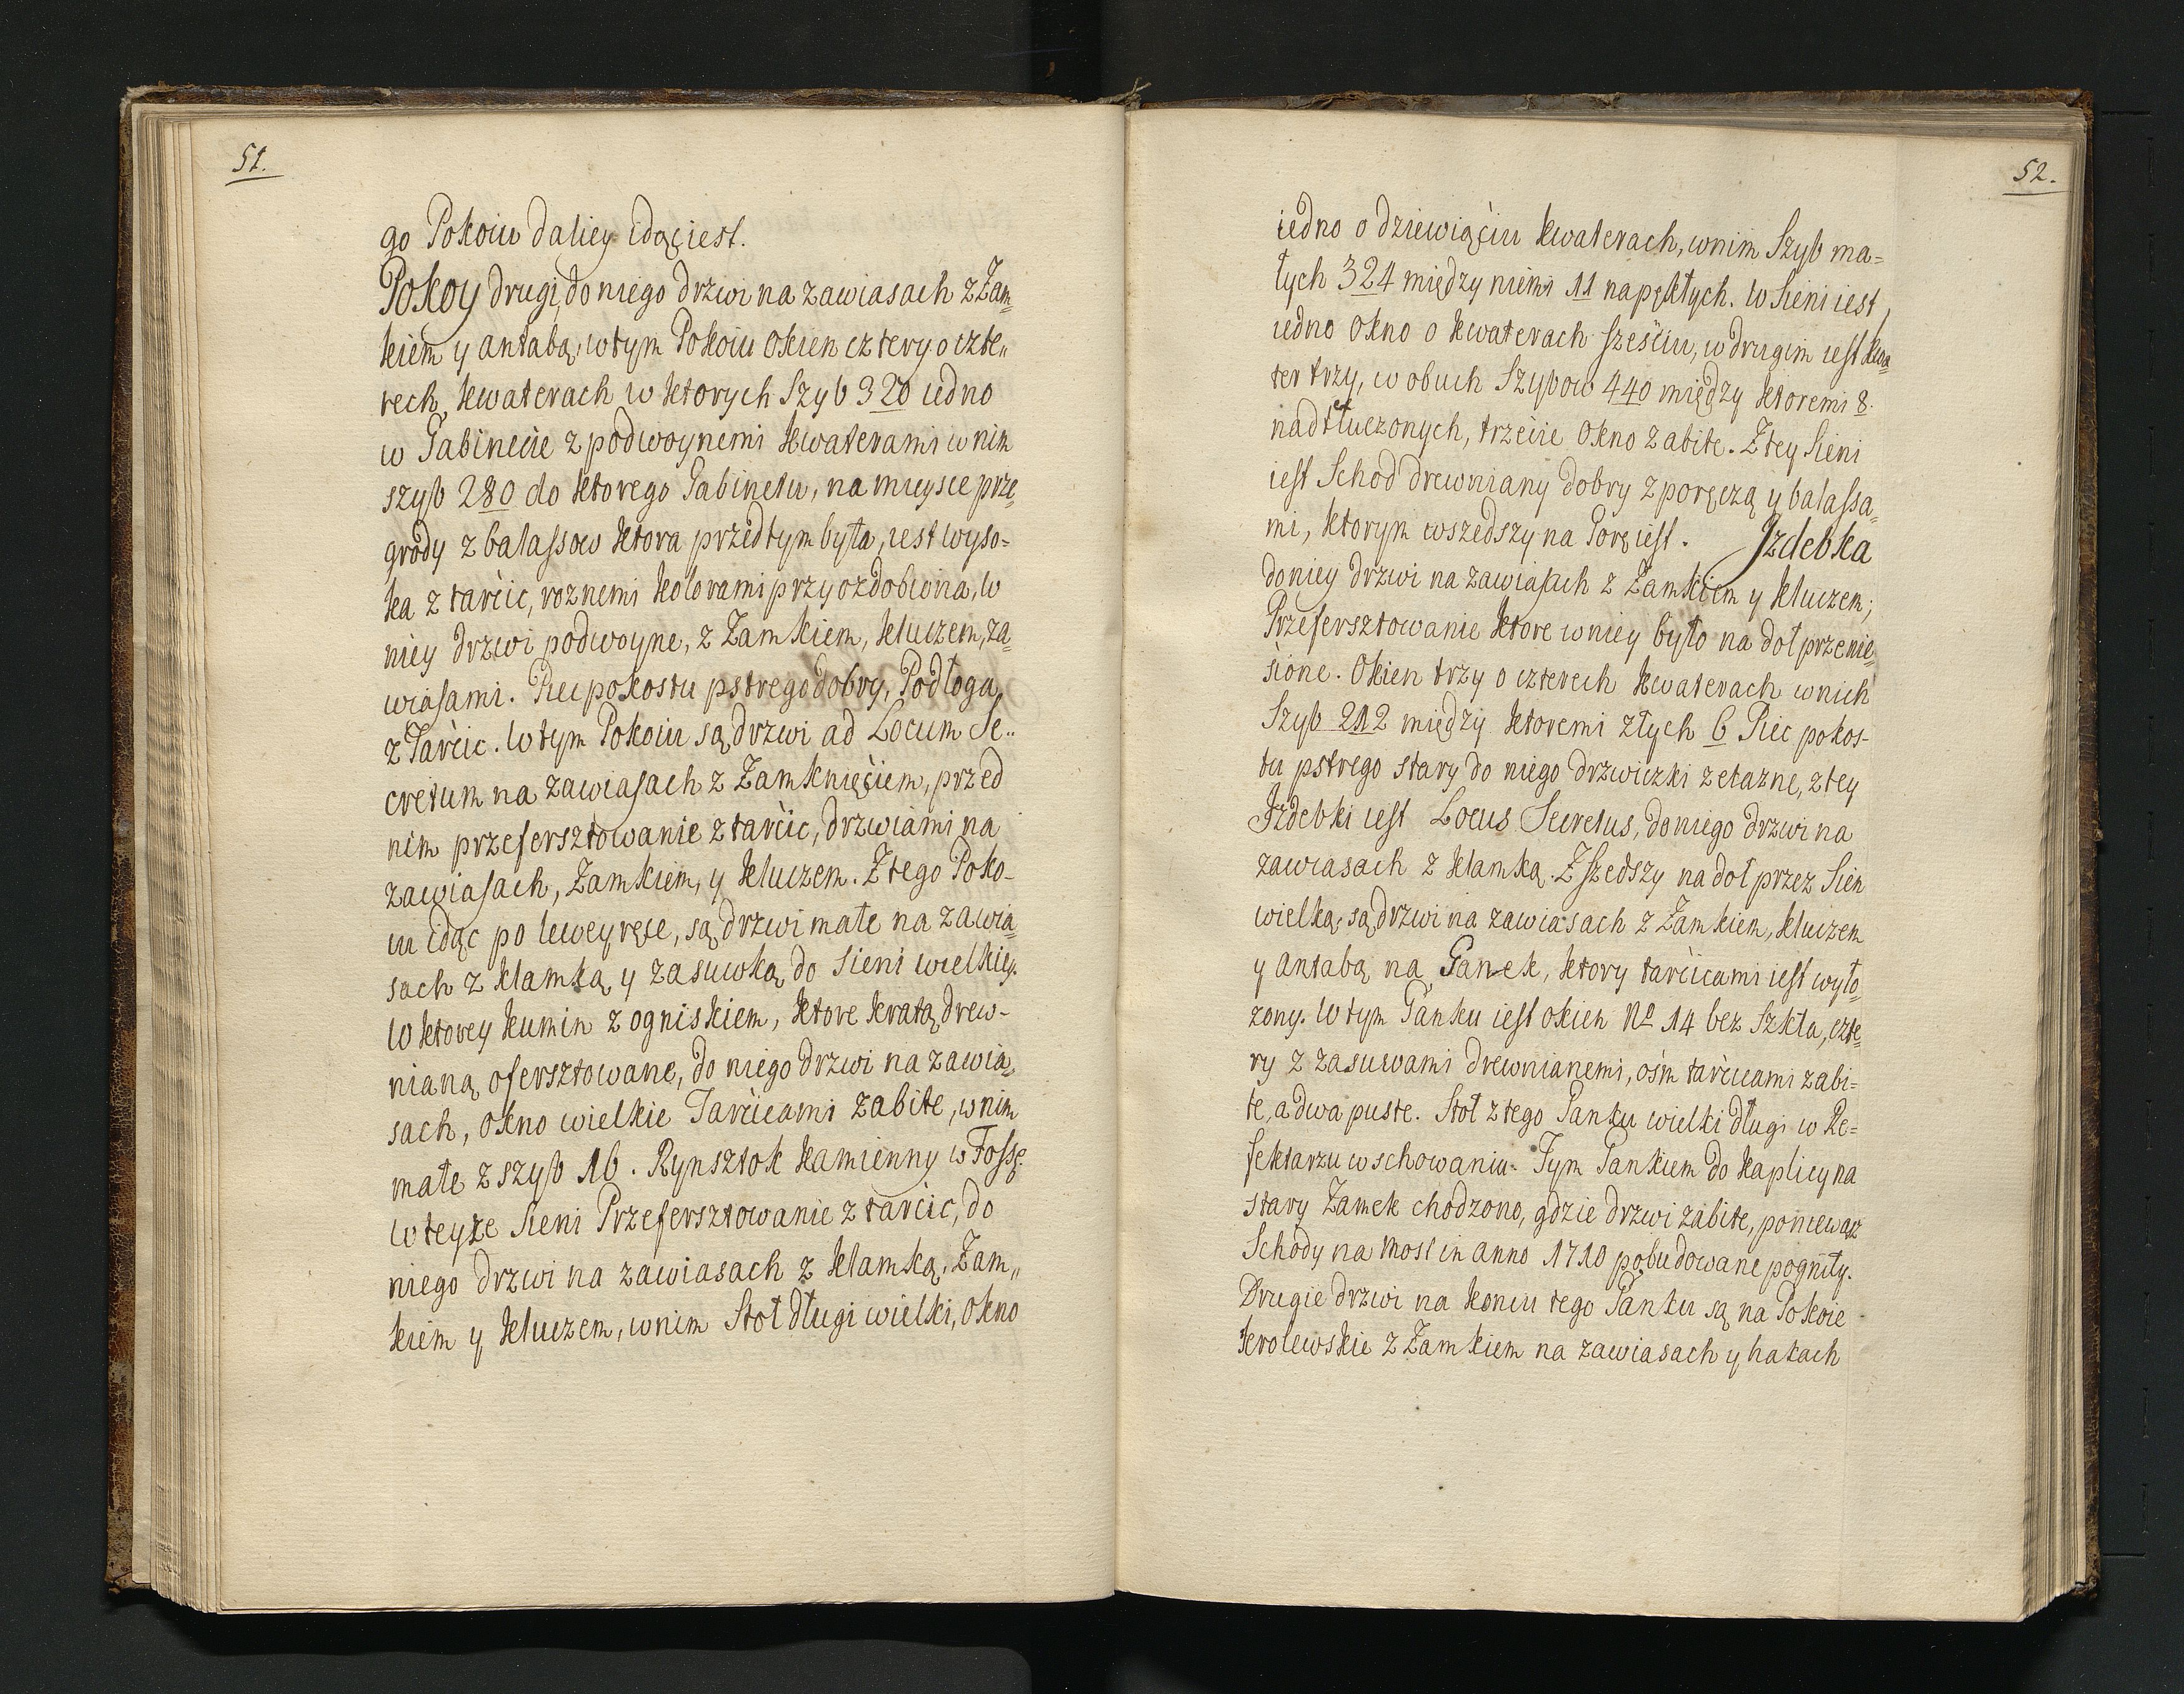 51.
go Pokoiu daliey idąc iest.
Pokoy drugi, do niego drzwi na zawiasach z Zam=
kiem y antabą, w tym Pokoiu Okien cztery o czte„
rech kwaterach w ktorych Szyb 320 iedno
w Gabinecie z podwoynemi kwaterami w nim
szyb 280 do ktorego Gabinetu, na mieysce prze=
grody z balassow ktora przedtym była, iest wyso=
ka z tarcic, roznemi kolorami przyozdobiona, w
niey drzwi podwoyne, z Zamkiem, kluczem, za=
wiasami. Piec pokostu pstrego dobry, Podłoga
z Tarcic. W tym Pokoiu są drzwi ad Locum Se..
cretum na zawiasach z Zamknięciem, przed
nim przefersztowanie z tarcic, drzwiami na
zawiasach, Zamkiem, y kluczem. Z tego Poko-
iu idąc po lewey ręce, są drzwi małe na zawia=
sach z klamką y zasuwką do Sieni wielkiey.
W ktorey kumin z ogniskiem, ktore kratą drew-
nianą ofersztowane, do niego drzwi na zawia„
sach, okno wielkie Tarcicami zabite, w nim
małe z szyb 16. Rynsztok kamienny w Fossę.
W teyze Sieni Przefersztowanie z tarcic, do
niego drzwi na zawiasach z klamką, Zam„
kiem y kluczem, w nim Stoł długi wielki, Okno
52.
iedno o dziewiąciu kwaterach, w nim Szyb ma=
łych 324 między niemi 11 napękłych. W Sieni iest
iedno Okno o kwaterach sześciu, w drugim iest kwa=
ter trzy, w obuch Szybow 440 między ktoremi 8.
nadtłuczonych, trzecie Okno zabite. Z tey Sieni
iest Schod drewniany dobry z poręczą y balassa=
mi, ktorym wszedszy na Gorę iest. Jzdebka
do niey drzwi na zawiasach z Zamkiem y kluczem;
Przefersztowanie ktore w niey było na doł przenie=
sione. Okien trzy o czterech kwaterach w nich
Szyb 212 między ktoremi złych 6 Piec pokos-
tu pstrego stary do niego drzwiczki zelazne, z tey
Jzdebki iest Locus Secretus, do niego drzwi na
zawiasach z klamką. Z Szedszy na doł przez Sień
wielką, są drzwi na zawiasach z Zamkiem, kluczem
y antabą na Ganek, ktory tarcicami iest wyło=
zony. W tym Ganku iest okien No 14 bez Szkła, czte=
ry z zasuwami drewnianemi, ośm tarcicami zabi=
te, a dwa puste. Stoł z tego Ganku wielki długi w Re=
fektarzu w schowaniu. Tym Gankiem do kaplicy na
stary Zamek chodzono, gdzie drzwi zabite, poniewaz
Schody na Most in anno 1710 pobudowane pogniły.
Drugie drzwi na koncu tego Ganku są na Pokoie
krolewskie z Zamkiem na zawiasach y hakach